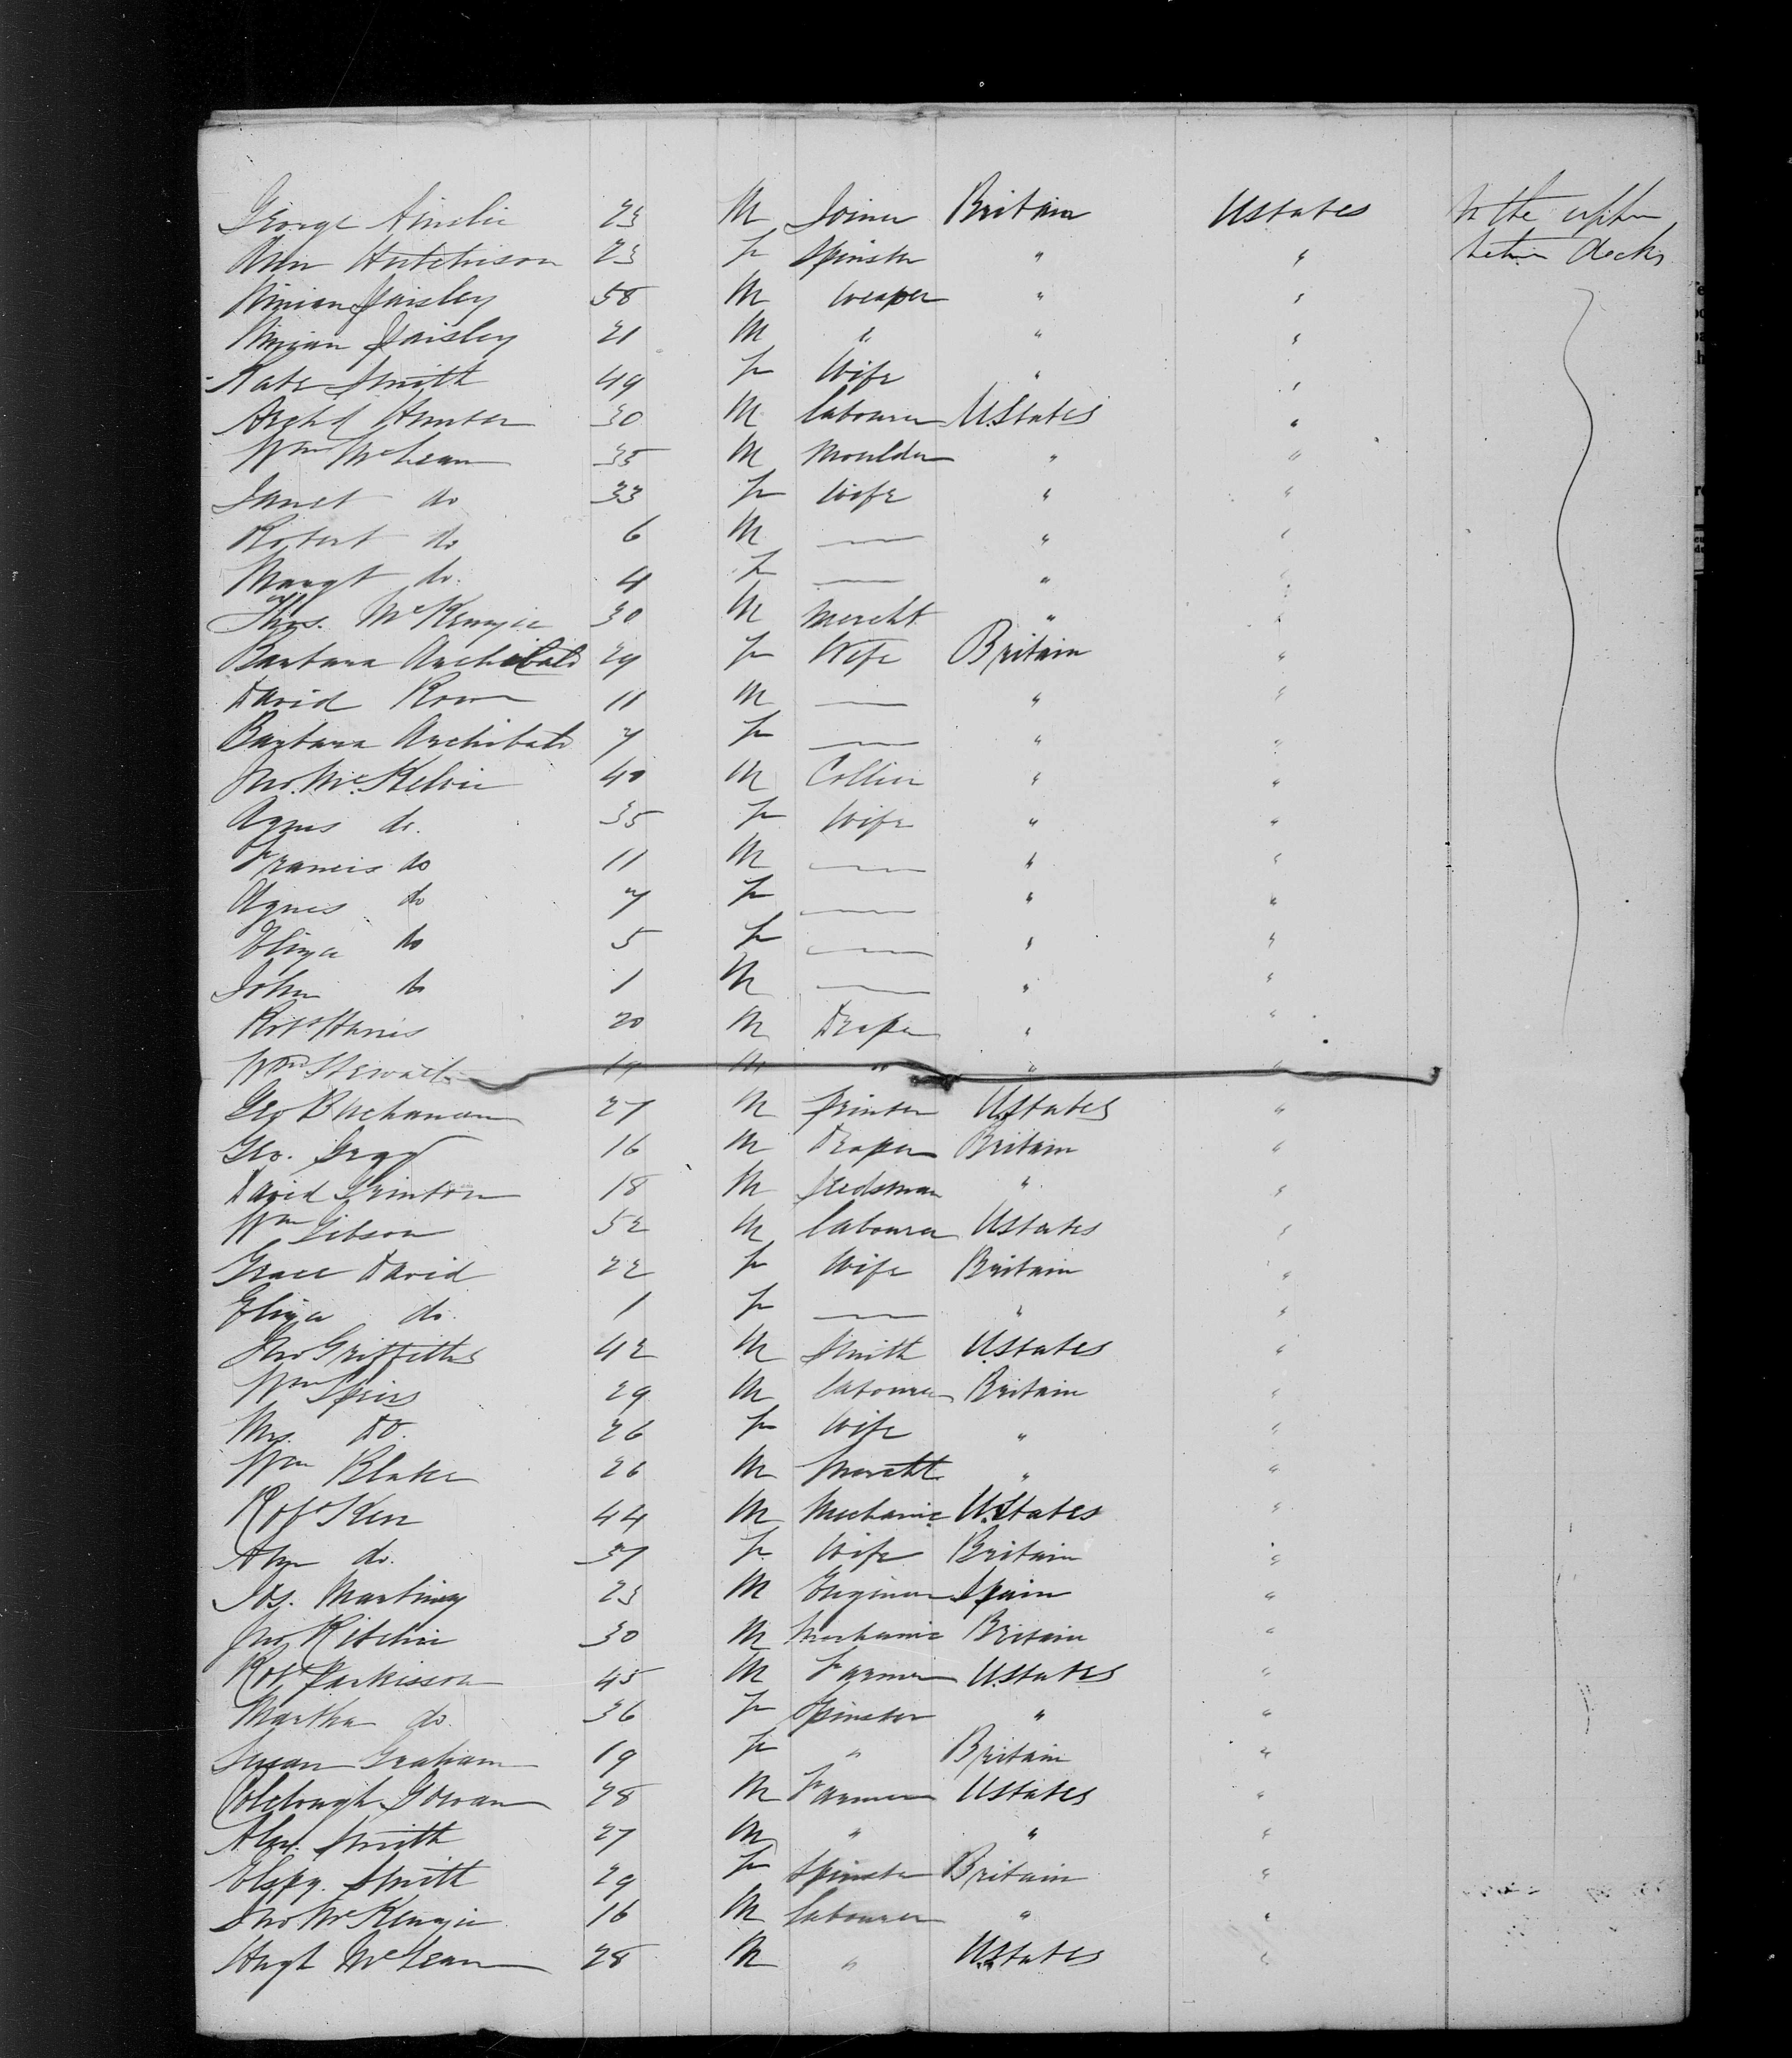 George Ainslie 23 M Joiner Britain UStates In the upper
Ann Hutchison 23 F Spinster " " between decks
Ninian Paisley 58 M Weaver " "
Ninian Paisley 21 M " " "
Kate Smith 49 F Wife " "
Archd Hunter 30 M labourer UStates "
Wm McLean 35 M Moulder " "
Janet do 33 F Wife " "
Robert do 6 M — " "
Margt do. 4 F — " "
Thos. McKenzie 30 M Mercht " "
Barbara Archibald 29 F Wife Britain "
David Rown 11 M — " "
Barbara Archibald 7 F — " "
Jno. McKelvie 40 M Collier " "
Agnes do. 35 F Wife " "
Francis do 11 M — " "
Agnes do 7 F — " "
Eliza do 5 F — " "
John do 1 M — " "
Robt Harris 20 M Draper " "
Wm Stewart 19 M " " "
Geo Buchanan 27 M printer UStates "
Geo. Gray 16 M Draper Britain "
David Swinton 18 M Seedsman " "
Wm Gibson 52 M labourer UStates "
Grace David 22 F Wife Britain "
Eliza do. 1 F — " "
Jno Griffiths 42 M Smith UStates "
Wm Speirs 29 M labourer Britain "
Mrs. Do. 26 F Wife " "
Wm Blake 26 M Mercht " "
Robt Kerr 44 M Mechanic UStates "
Ann do. 37 F Wife Britain "
Jos. Martinez 23 M Engineer Spain "
Jno Ritchie 30 M Mechanic Britain "
Robt Parkisson 45 M Farmer UStates "
Martha do. 36 F Spinster " "
Susan Graham 19 F " Britain "
Colclough Gowan 28 M Farmer UStates "
Alex. Smith 27 M " " "
Elspy. Smith 29 F Spinster Britain "
Jno McKenzie 16 M labourer " "
Hugh McLean 28 M " UStates "